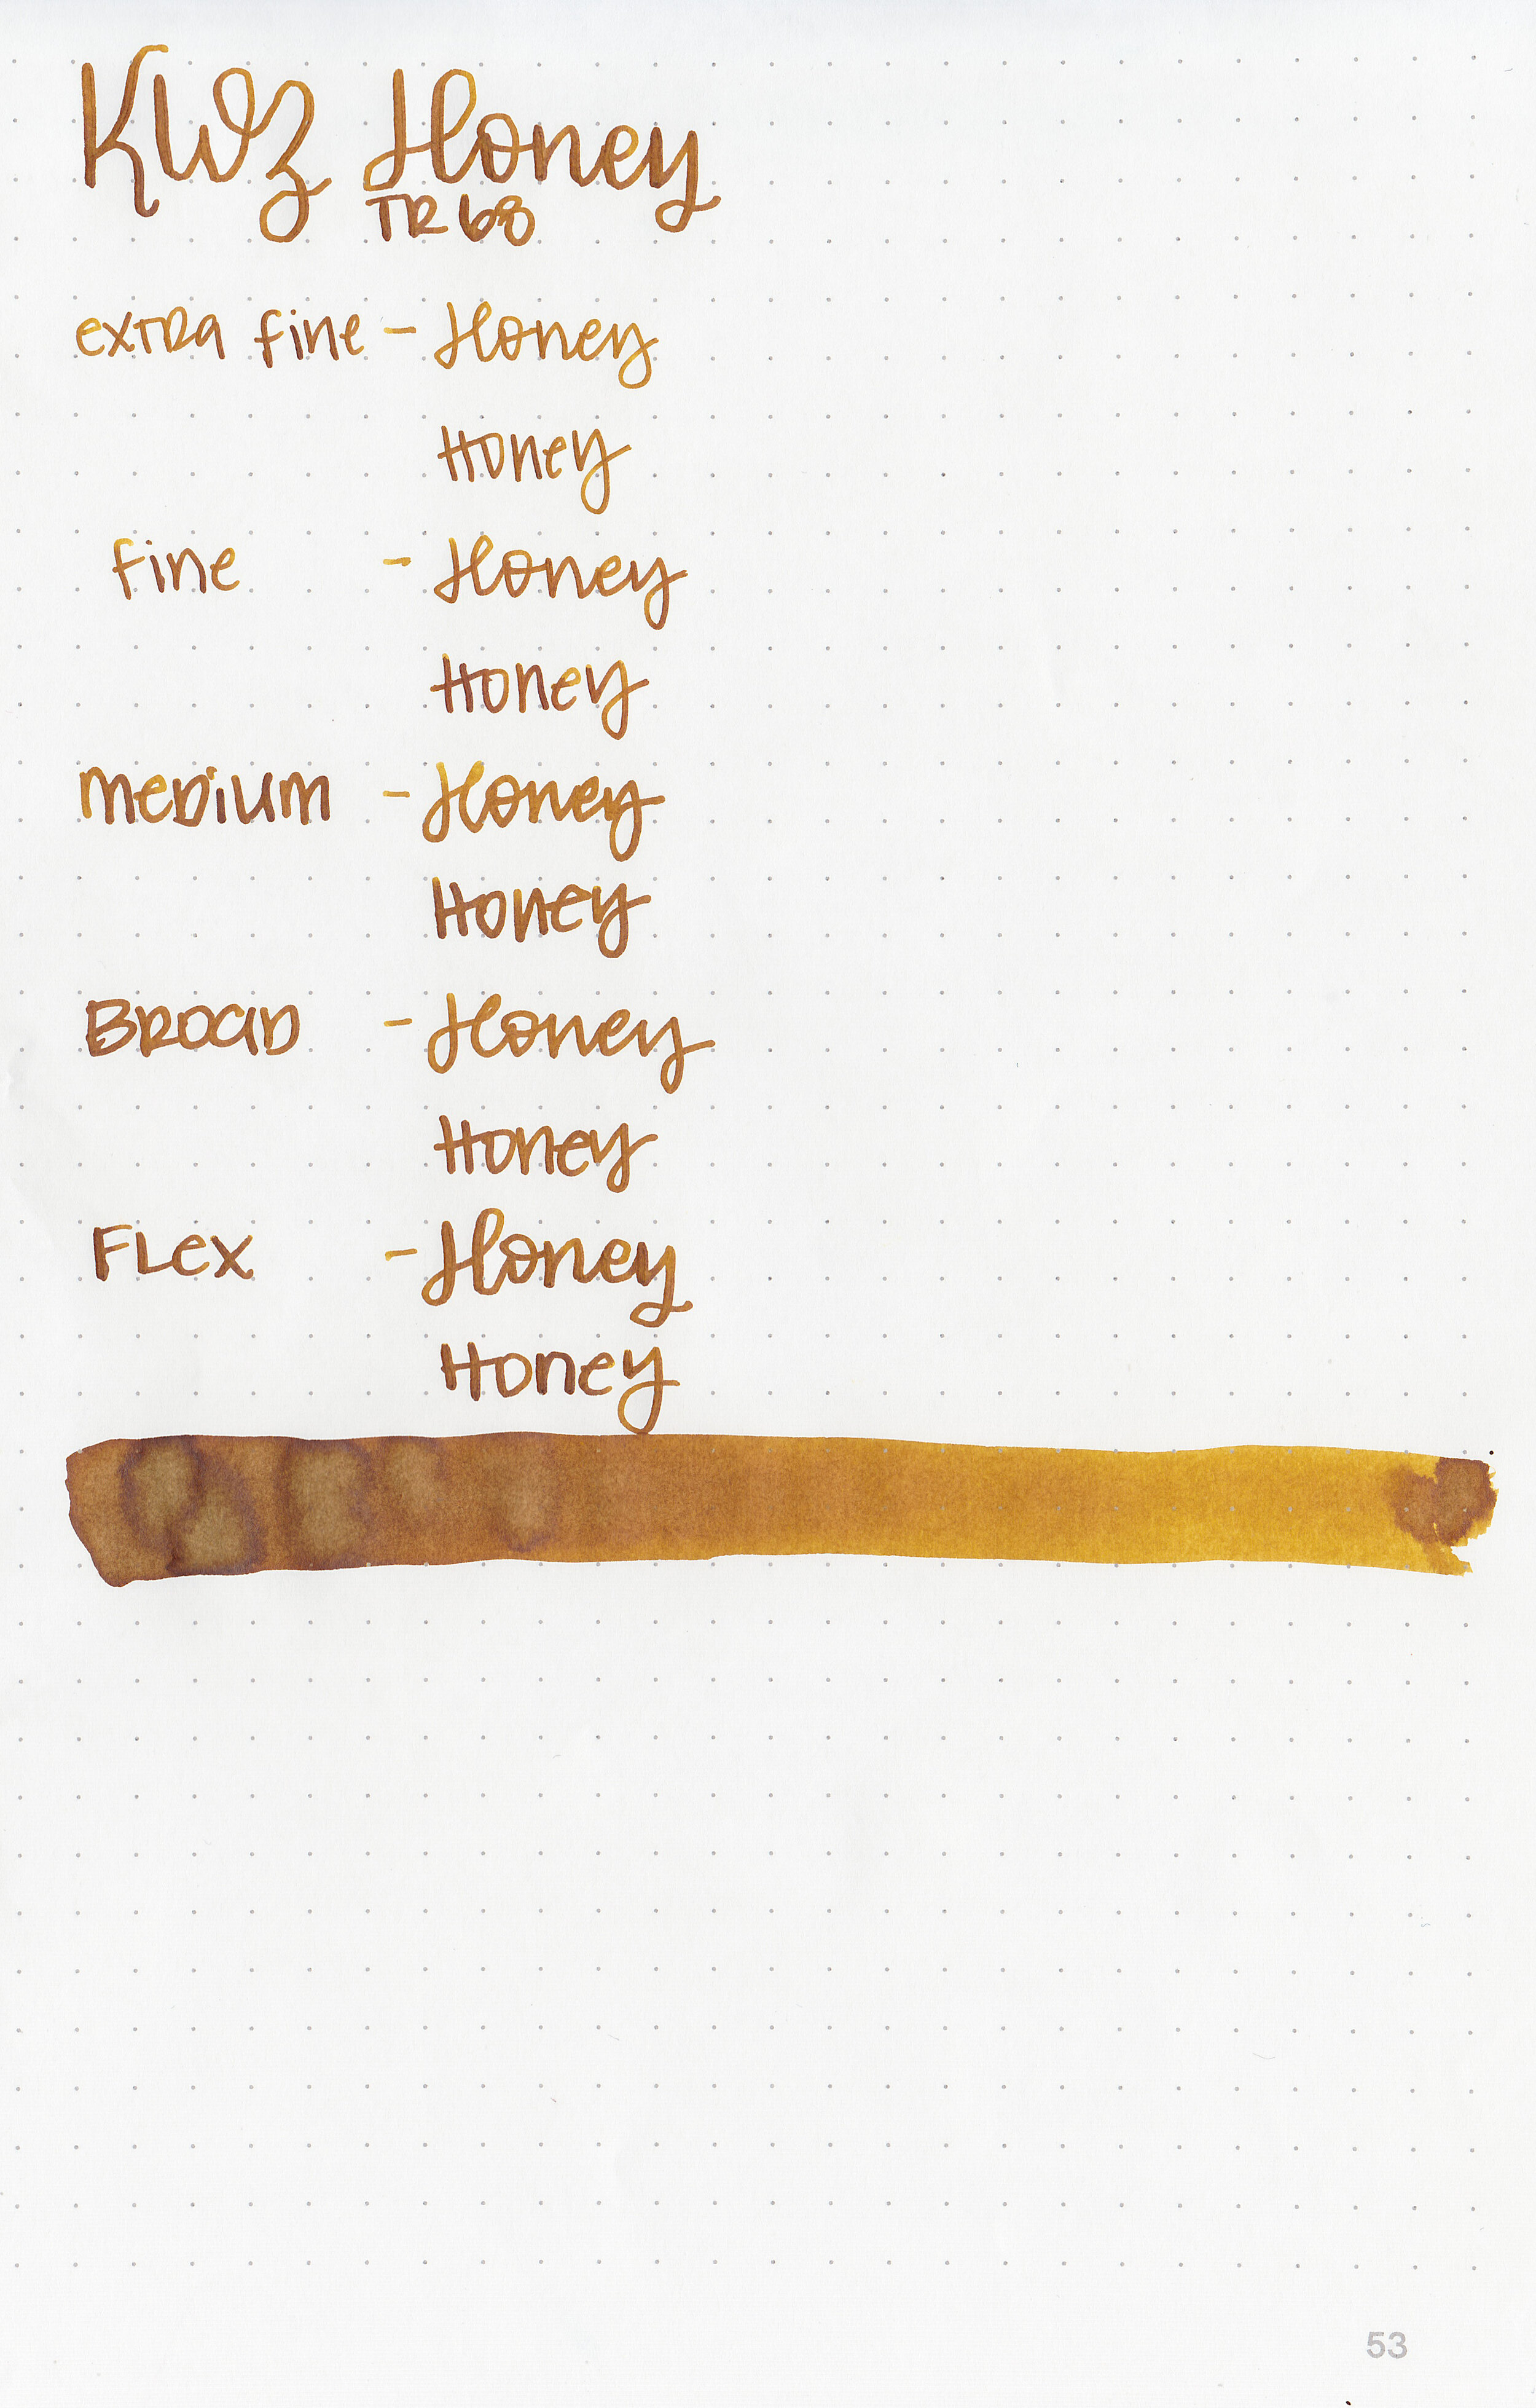 KWZ Honey
TR 68
extra fine - Honey
Honey
fine - Honey
Honey
medium - Honey
Honey
Broad - Honey
Honey
Flex - Honey
Honey
53